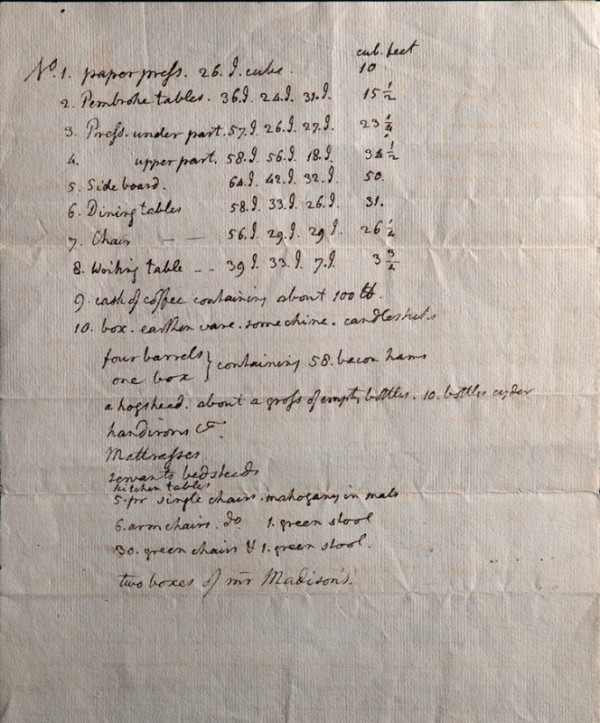 cub. feet
No. 1. paper press. 26. I. cube. 10
2. Pembroke tables. 36. I. 24. I. 31. I. 15 1/2
3. Press. under part. 57. I. 26. I. 27. I. 23 1/4
4. upper part. 58. I. 56. I. 18. I. 34 1/2
5. Side board. 64. I. 42. I. 32. I. 50.
6. Dining tables 58. I. 33. I. 26. I. 31.
7. Chair — — 56. I. 29. I. 29 I. 26 1/4
8. Writing table - - 39 I. 33. I. 7. I. 3 3/4
9. cask of coffee containing about 100 lb.
10. box. earthen ware. some chine. candlesticks
four barrels } containing 58. bacon hams
one box
a hogshead. about a gross of empty bottles. 10. bottles cyder
handirons &c.
Mattrasses.
servants bedsteads
kitchen tables
5. pr single chairs. mahogany in mats
6. arm chairs. do 1. green stool
30. green chairs & 1. green stool.
two boxes of mr Madison's.